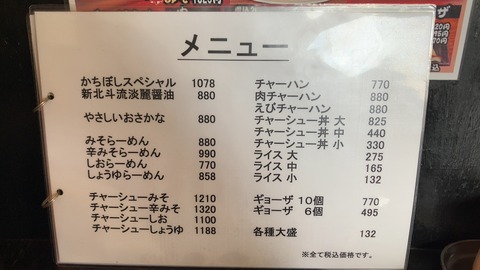 メニュー
かちぼしスペシャル 1078
新北斗流淡麗醤油 880
やさしいおさかな 880
みそらーめん 880
辛みそらーめん 990
しおらーめん 770
しょうゆらーめん 858
チャーシューみそ 1210
チャーシュー辛みそ 1320
チャーシューしお 1100
チャーシューしょうゆ 1188
チャーハン 770
肉チャーハン 880
えびチャーハン 880
チャーシュー丼 大 825
チャーシュー丼 中 440
チャーシュー丼 小 330
ライス 大 275
ライス 中 165
ライス 小 132
ギョーザ 10個 770
ギョーザ 6個 495
各種大盛 132
※全て税込価格です。